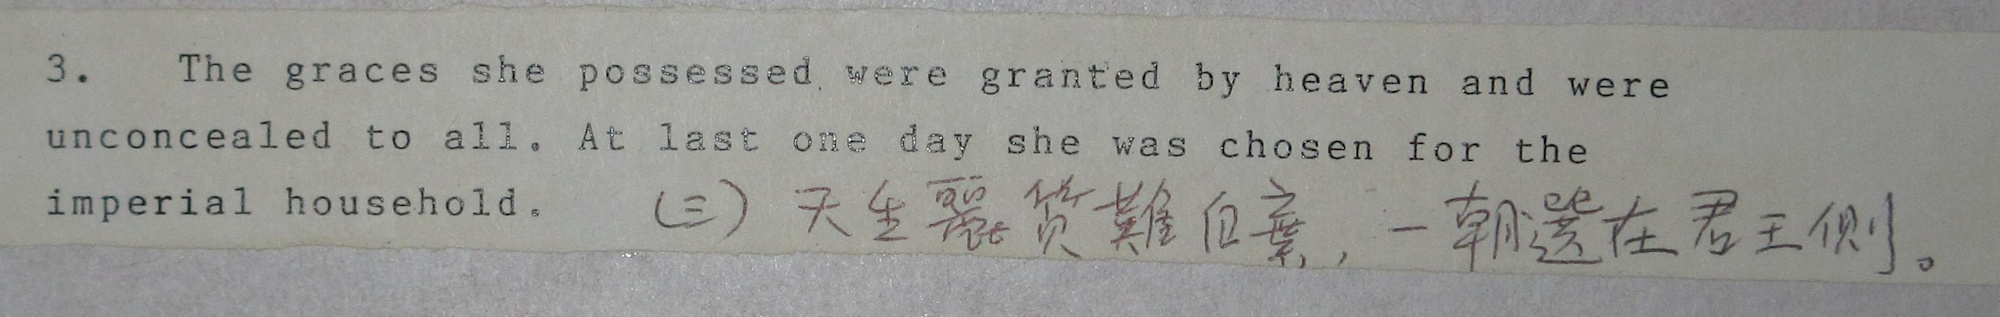 3. The graces she possessed were granted by heaven and were
unconcealed to all. At last one day she was chosen for the
imperial household. (三) 天生麗质難自棄，一朝選在君王側。